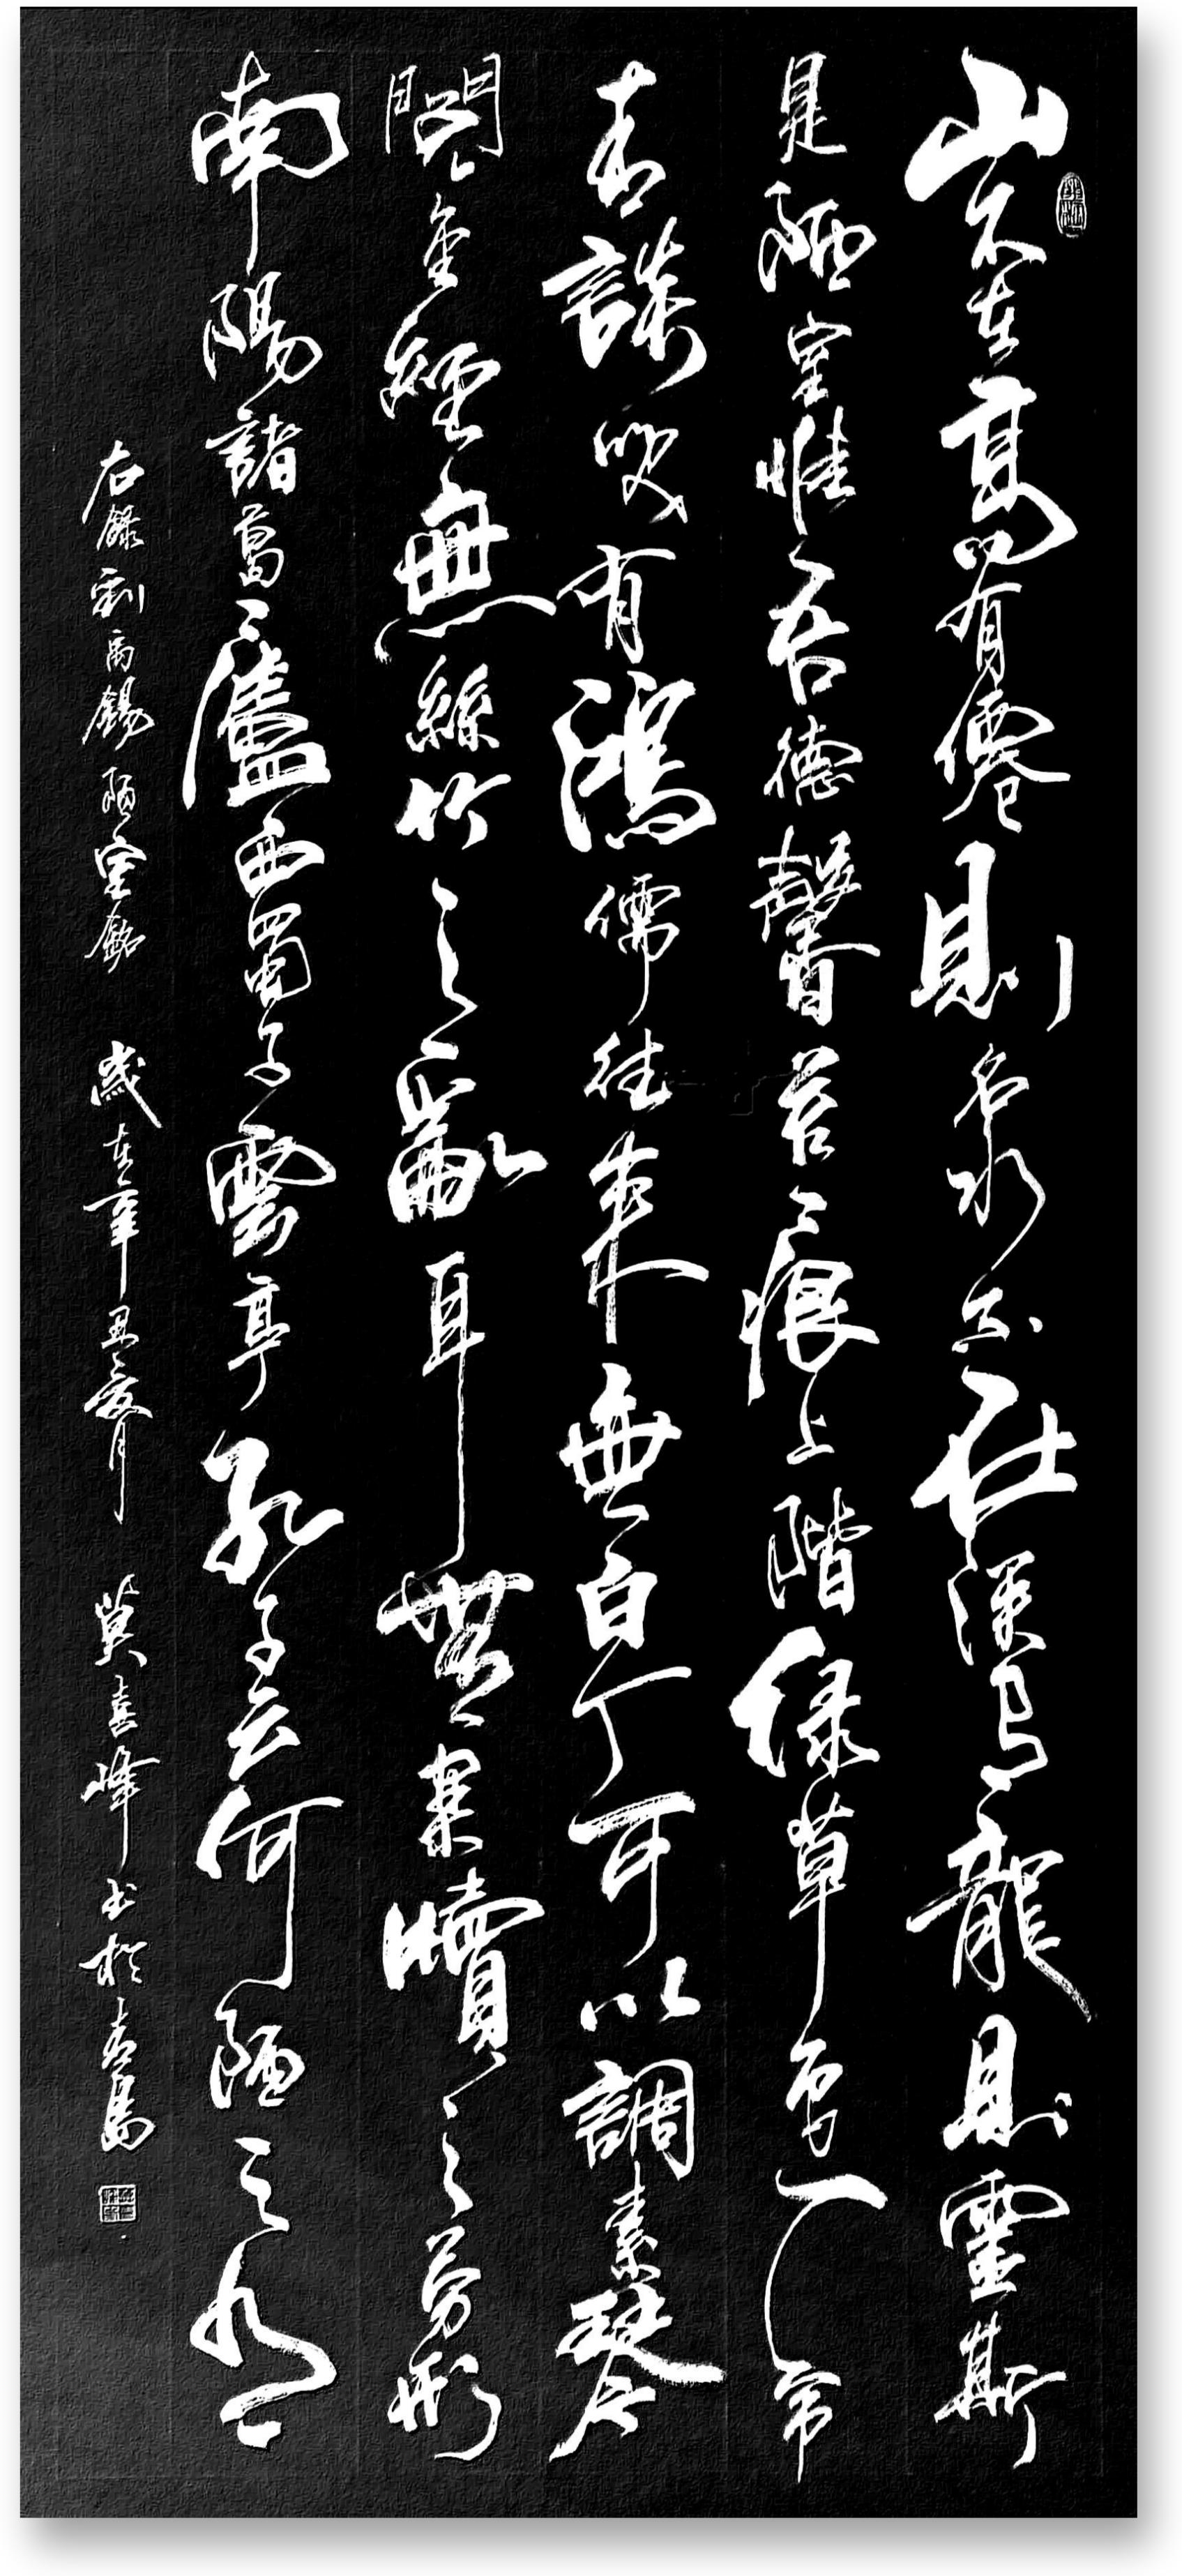 山不在高有僊則名水不在深有龍則靈斯
是陋室惟吾德馨苔痕上階綠草色入帘
青談咲有鴻儒往來無白丁可以調素琴
閱金經無絲竹之亂耳無案牘之勞形
南陽諸葛廬西蜀子雲亭孔子云何陋之有
右錄劉禹錫陋室銘 歲在辛丑夏月 莫喜峰书於青島